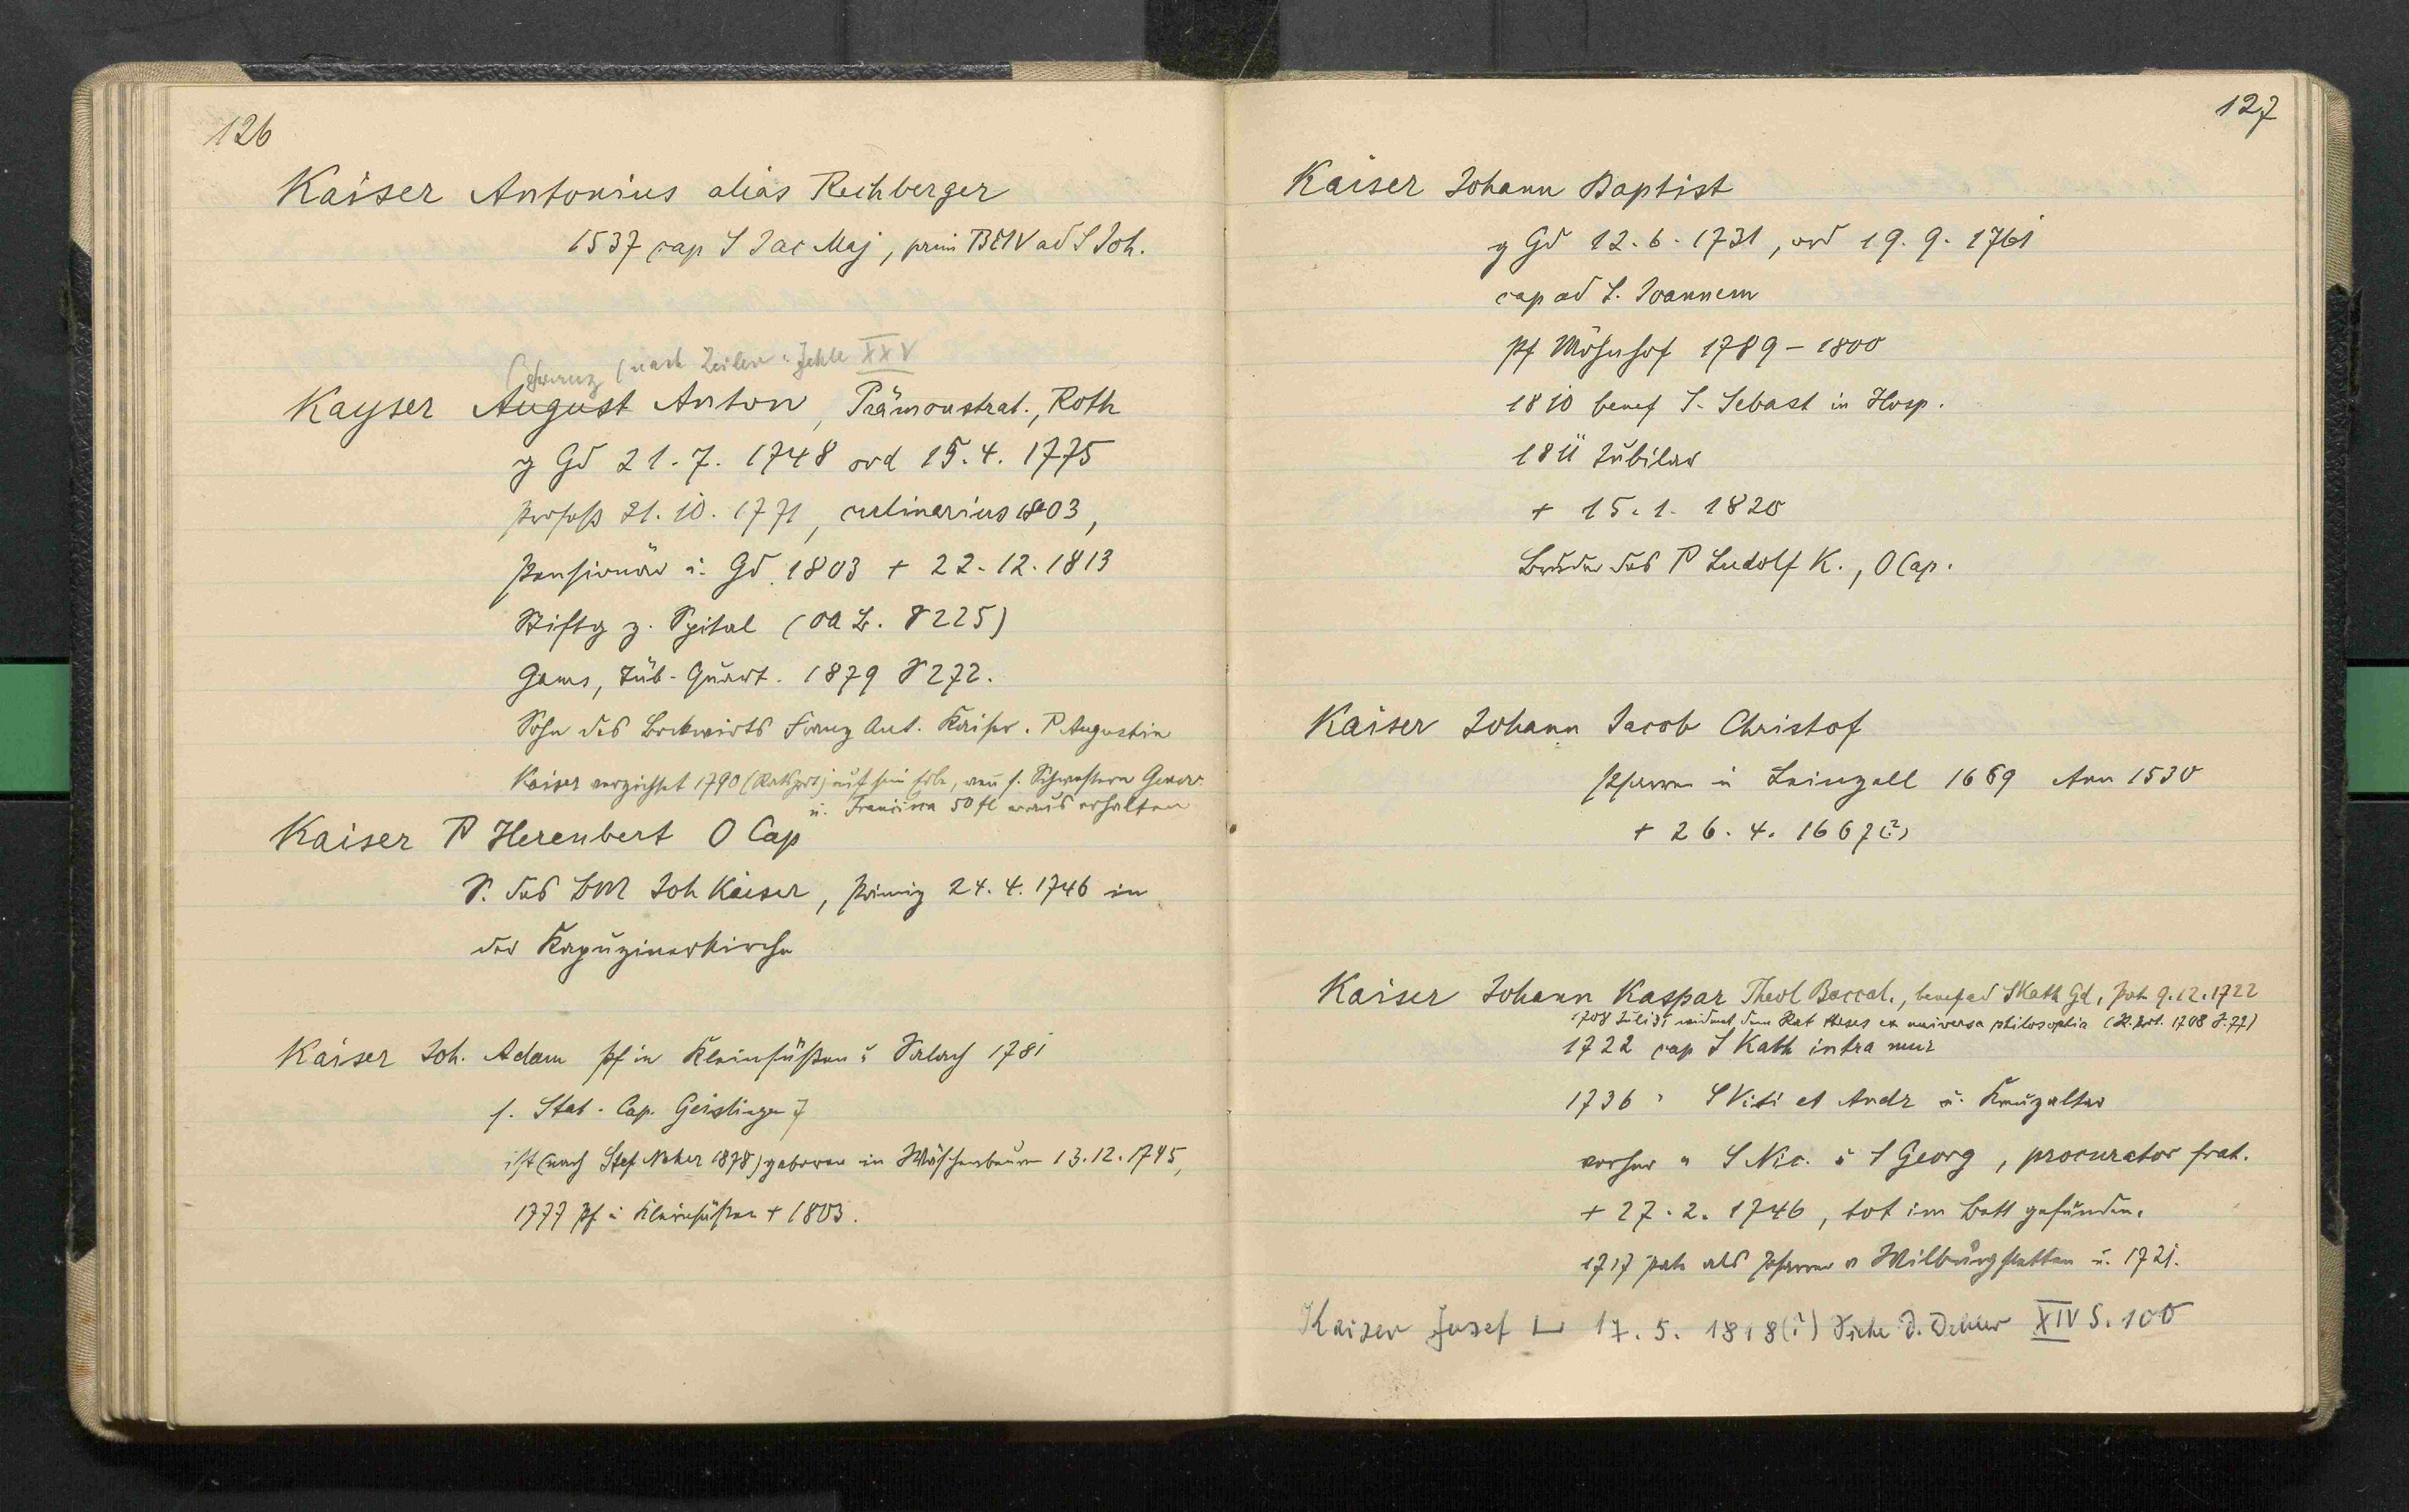 126
Kaiser Antonius alias Rechberger
1537 cap S Jac Maj, prim BMV ad S Joh.
Franz (nach Zeiler XXV
Kayser August Anton, Prämonstrat., Roth
g Gd 21.7.1748 ord 15.4.1775
Profeß 21.10.1771, culinarius 1803,
Pensionär i. Gd 1803 + 22.12.1813
Stiftg z. Spital (OA B. S 225)
Gams, Tüb. Quart. 1879 S 272.
Sohn des Bockwirts Franz Ant. Kaiser. P Augustin
Kaiser verzichtet 1790 auf sein Erbe, wenn s. Schwestern
u. Francisca 50 fl voraus erhalten
Kaiser P Herenbert O Cap
S. des BM Joh Kaiser, Primiz 24.4.1746 in
der Kapuzinerkirche
Kaiser Joh. Adam Pf in Kleinsüßen u Salach 1781
s. Stat. Cap. Geislingen 7
ist (nach Stef Neher 1878) geboren in Wäschenbeuren 13.12.1745,
1777 Pf i Kleinsüßen + 1803.
127
Kaiser Johann Baptist
g Gd 12.6.1731, ord 19.9.1761
cap ad S. Joannem
Pf Möhnhof 1789-1800
1810 benef S. Sebast in Hosp.
1811 Jubilar
+ 15.1.1820
Bruder des P Ludolf K., O Cap.
Kaiser Johann Jacob Christof
Pfarrer in Leinzell 1659 Arm 1530
+ 26.4.1667(?)
Kaiser Johann Kaspar Theol Baccal., benef ad S Kath Gd, Pate 9.12.1722
1708 Juli 31 widmet dem Rat theses ex universa philosophia (R. Prot. 1708 S. 77)
1722 cap S Kath intra mur
1736 " S Viti et Andr u. Kreuzaltar
vorher " S Nic. u S Georg, procurator frat.
+ 27.2.1746, tot im Bett gefunden.
1717 Pate als Pfarrer v Wilburgstetten u. 1721.
Kaiser Josef 17.5.1818(?) Siehe D. Debler XIV S. 100